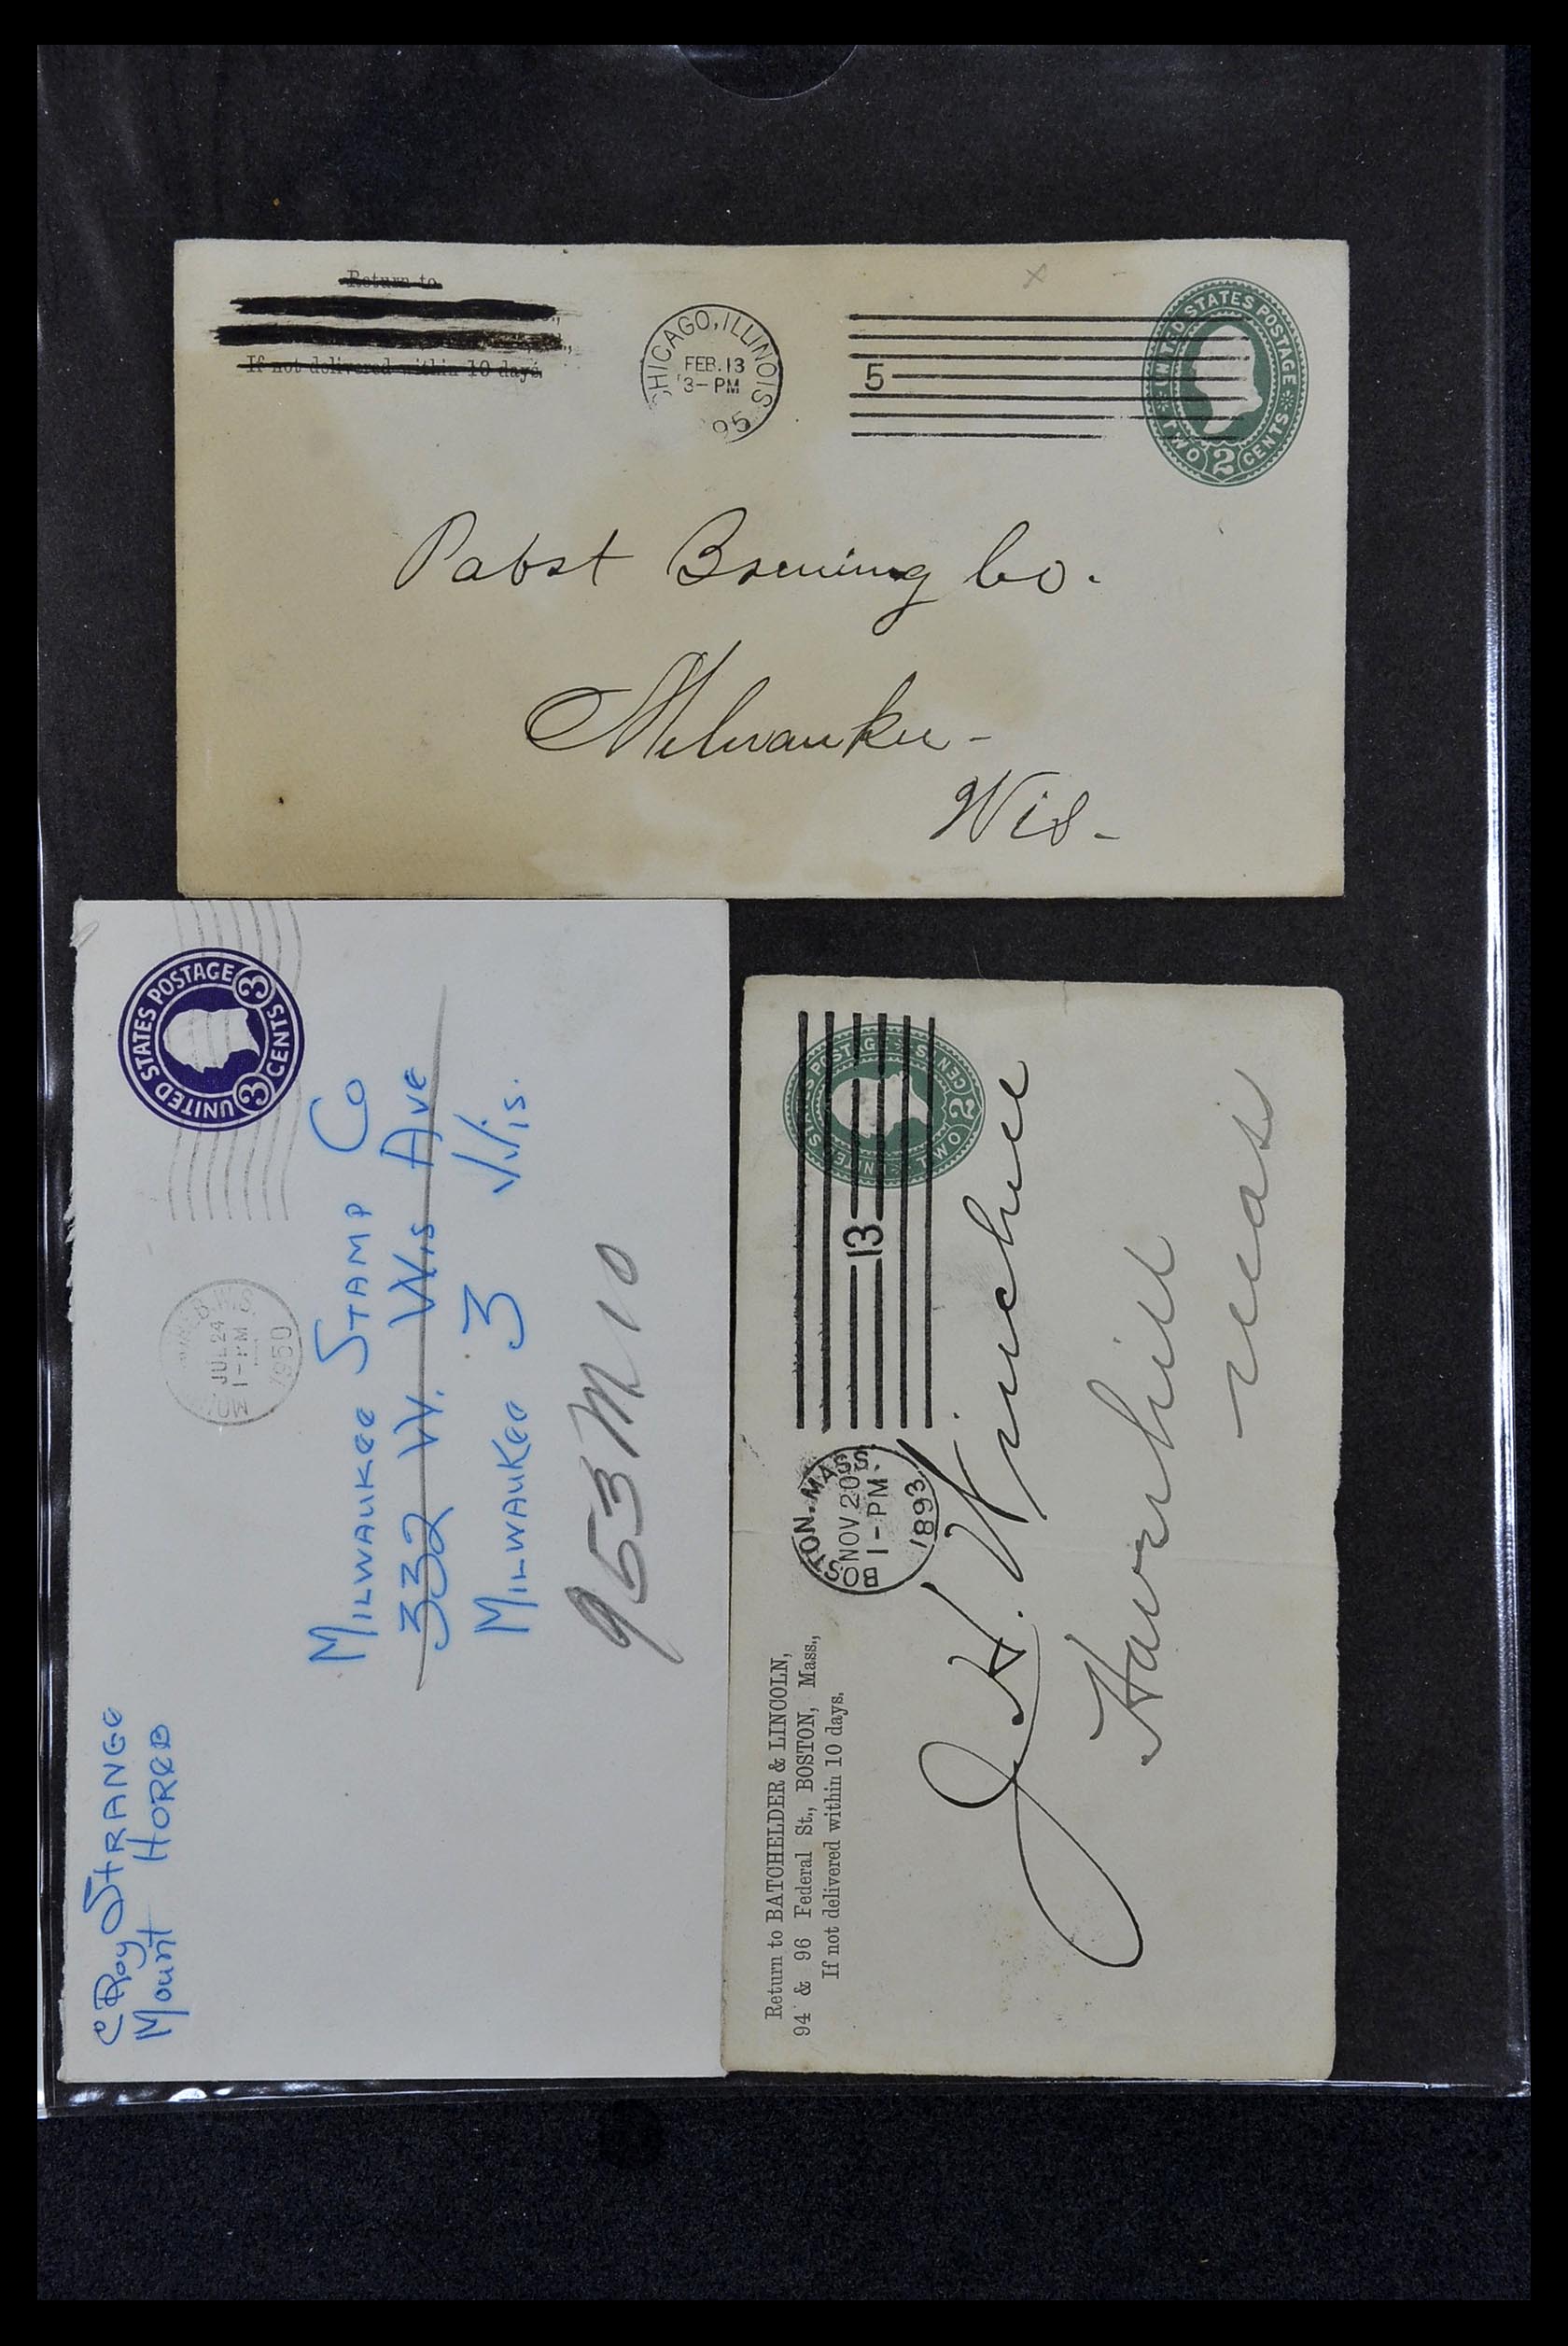 Return to
If not delivered within 10 days.
CHICAGO, ILLINOIS
FEB. 13
3-PM
95
5
UNITED STATES POSTAGE
TWO 2 CENTS
Pabst Brewing Co.
Milwaukee -
Wis -
UNITED STATES POSTAGE
3 CENTS 3
JUL 24
1-PM
1950
C Roy STRANGE
Mount HOREB
MILWAUKEE STAMP CO
332 W. Wis AVE
MILWAUKEE 3 Wis.
953 M 10
Return to BATCHELDER & LINCOLN,
94 & 96 Federal St., BOSTON, Mass.,
If not delivered within 10 days.
BOSTON. MASS.
NOV 20
1-PM
1893
13
UNITED STATES POSTAGE
TWO 2 CENTS
J. H. Winchell
Haverhill
Mass